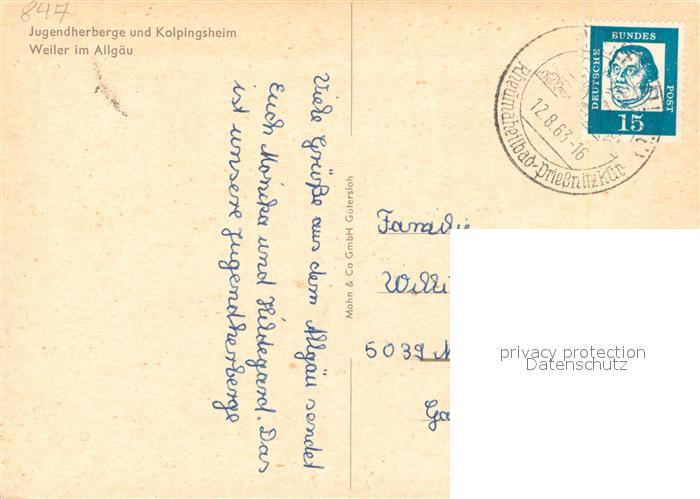 847
Jugendherberge und Kolpingsheim
Weiler im Allgäu
Viele Grüße aus dem Allgäu sendet
Euch Monika und Hildegard. Das
ist unsere Jugendherberge
Mohn & Co GmbH Gütersloh
Rheumaheilbad-Prießnitzkur
12.8.63-16
DEUTSCHE BUNDES POST
15
Familie
Willi
5039
privacy protection
Datenschutz